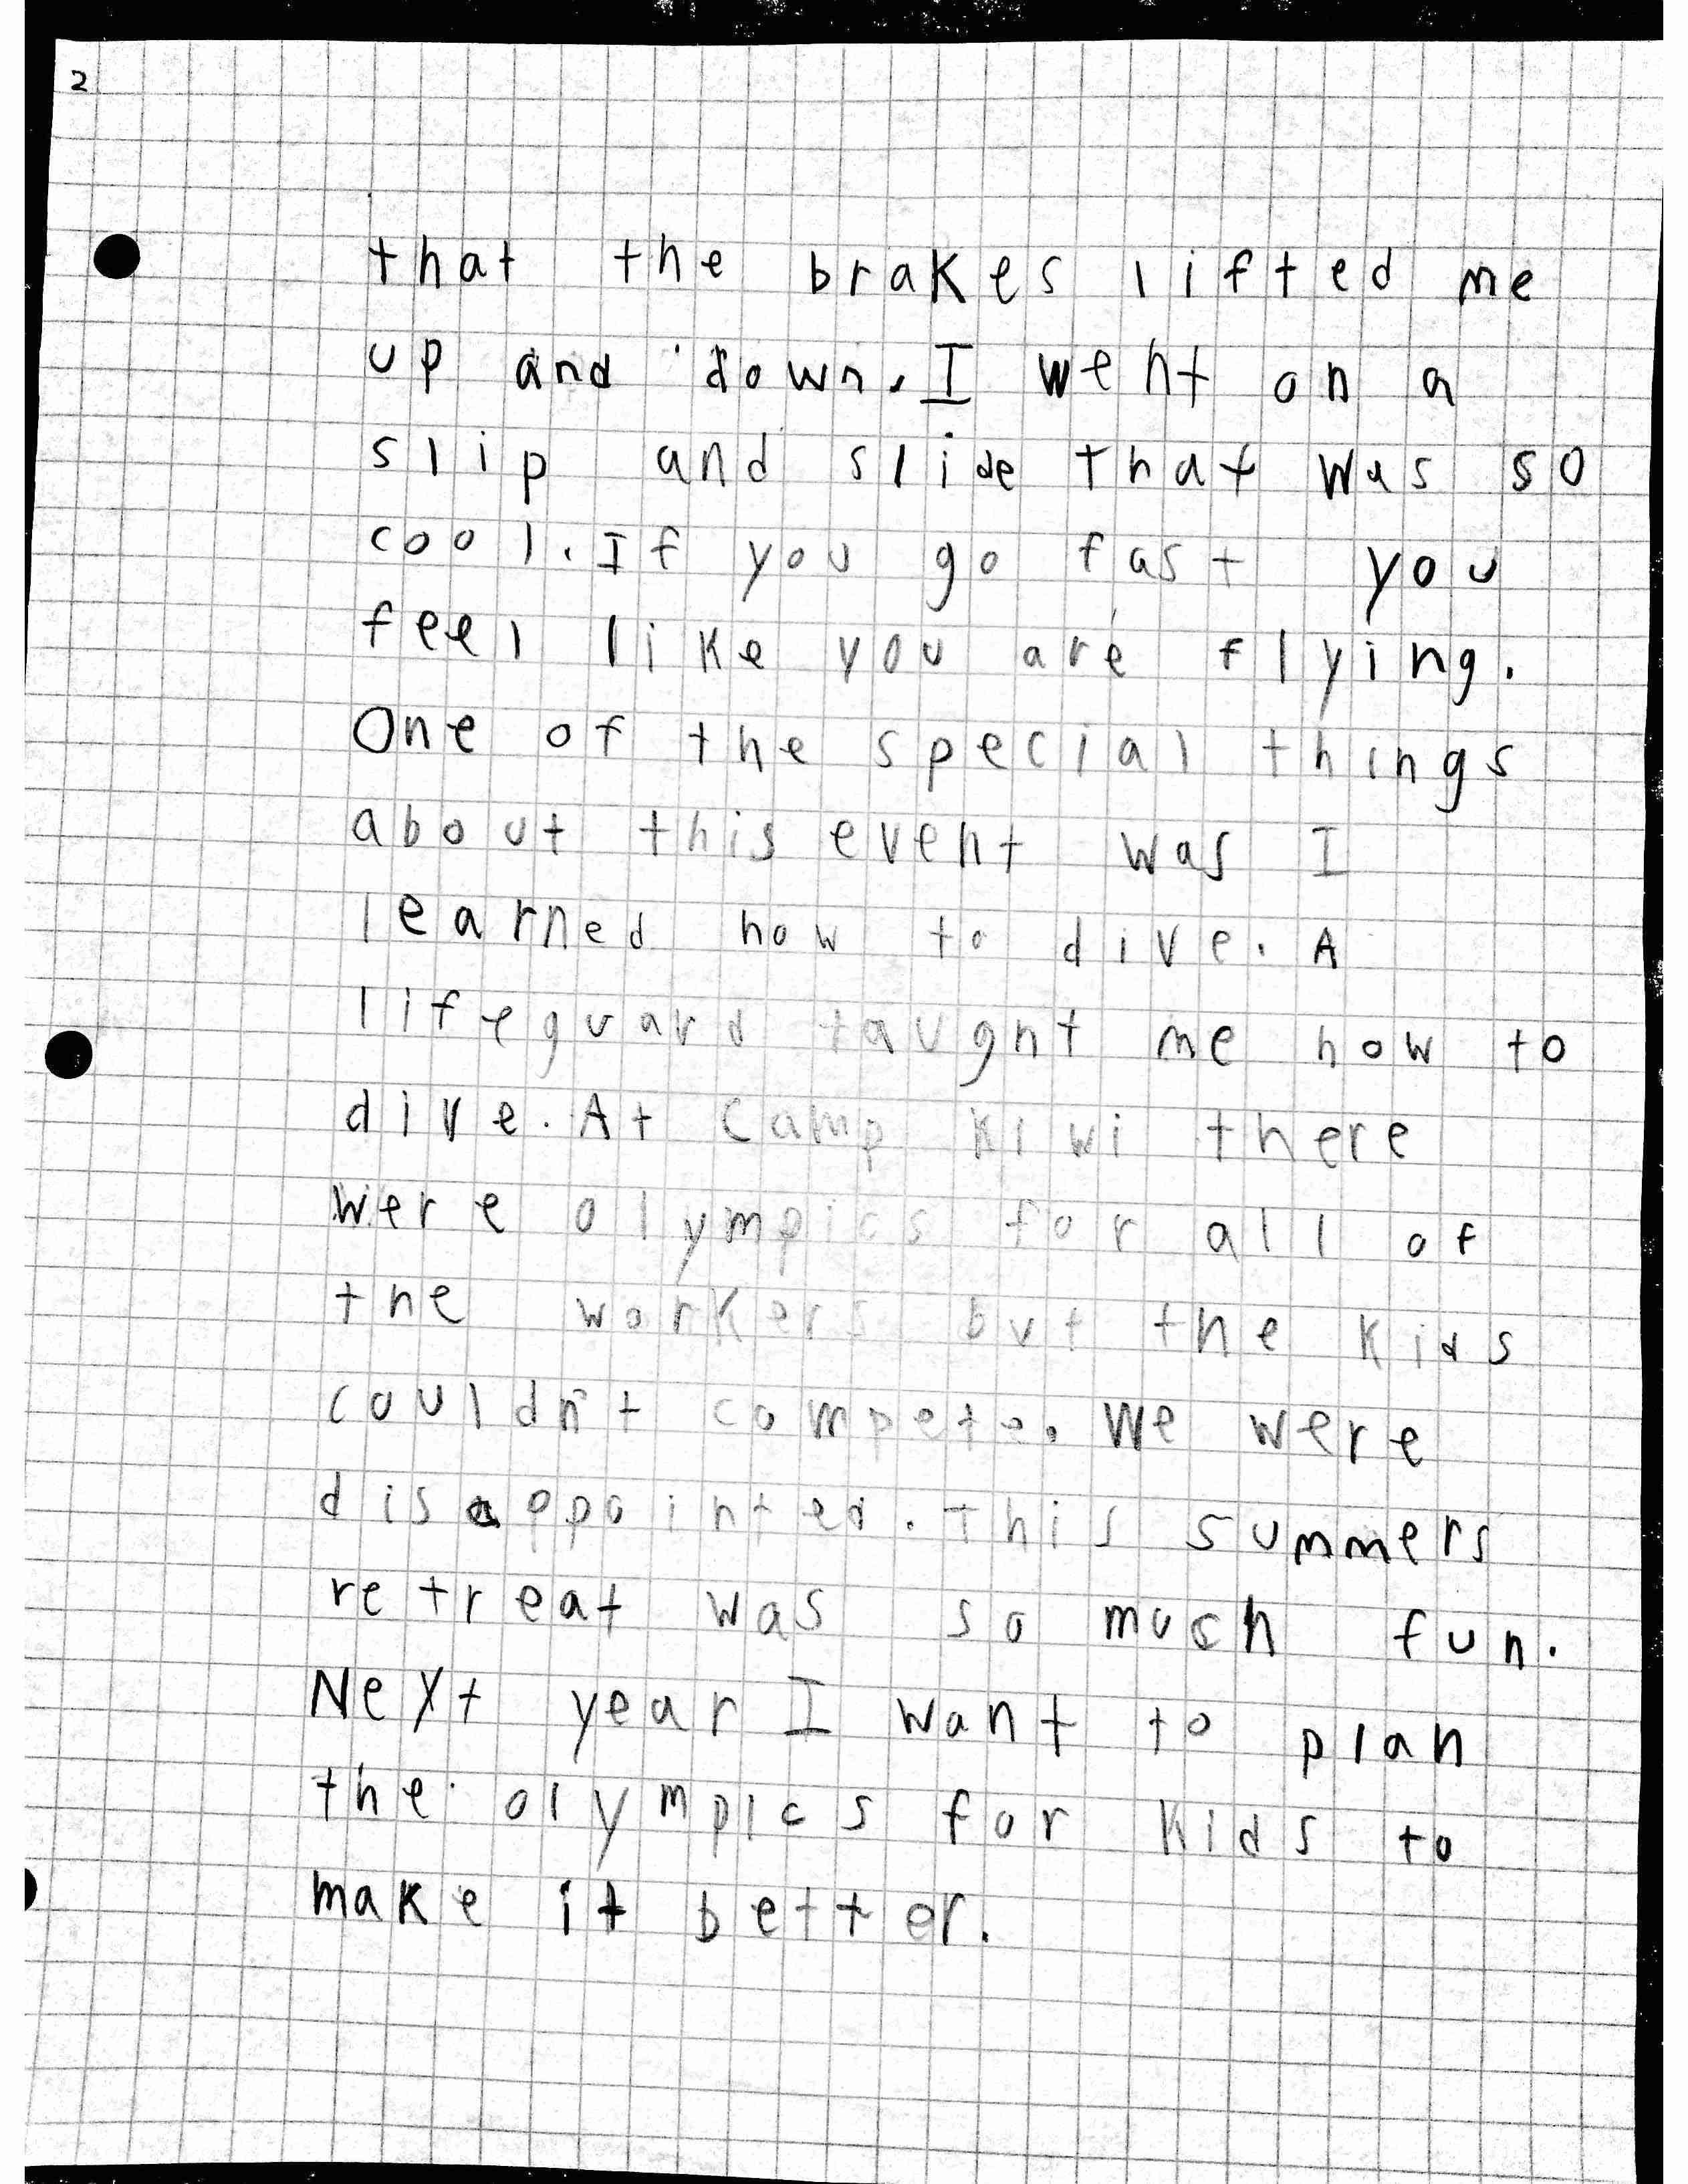 2
that the brakes lifted me
up and down. I went on a
slip and slide that was so
cool. If you go fast you
feel like you are flying.
One of the special things
about this event was I
learned how to dive. A
lifeguard taught me how to
dive. At Camp Kiwi there
were olympics for all of
the workers but the kids
couldn't compete. We were
disappointed. This summers
retreat was so much fun.
Next year I want to plan
the olympics for kids to
make it better.